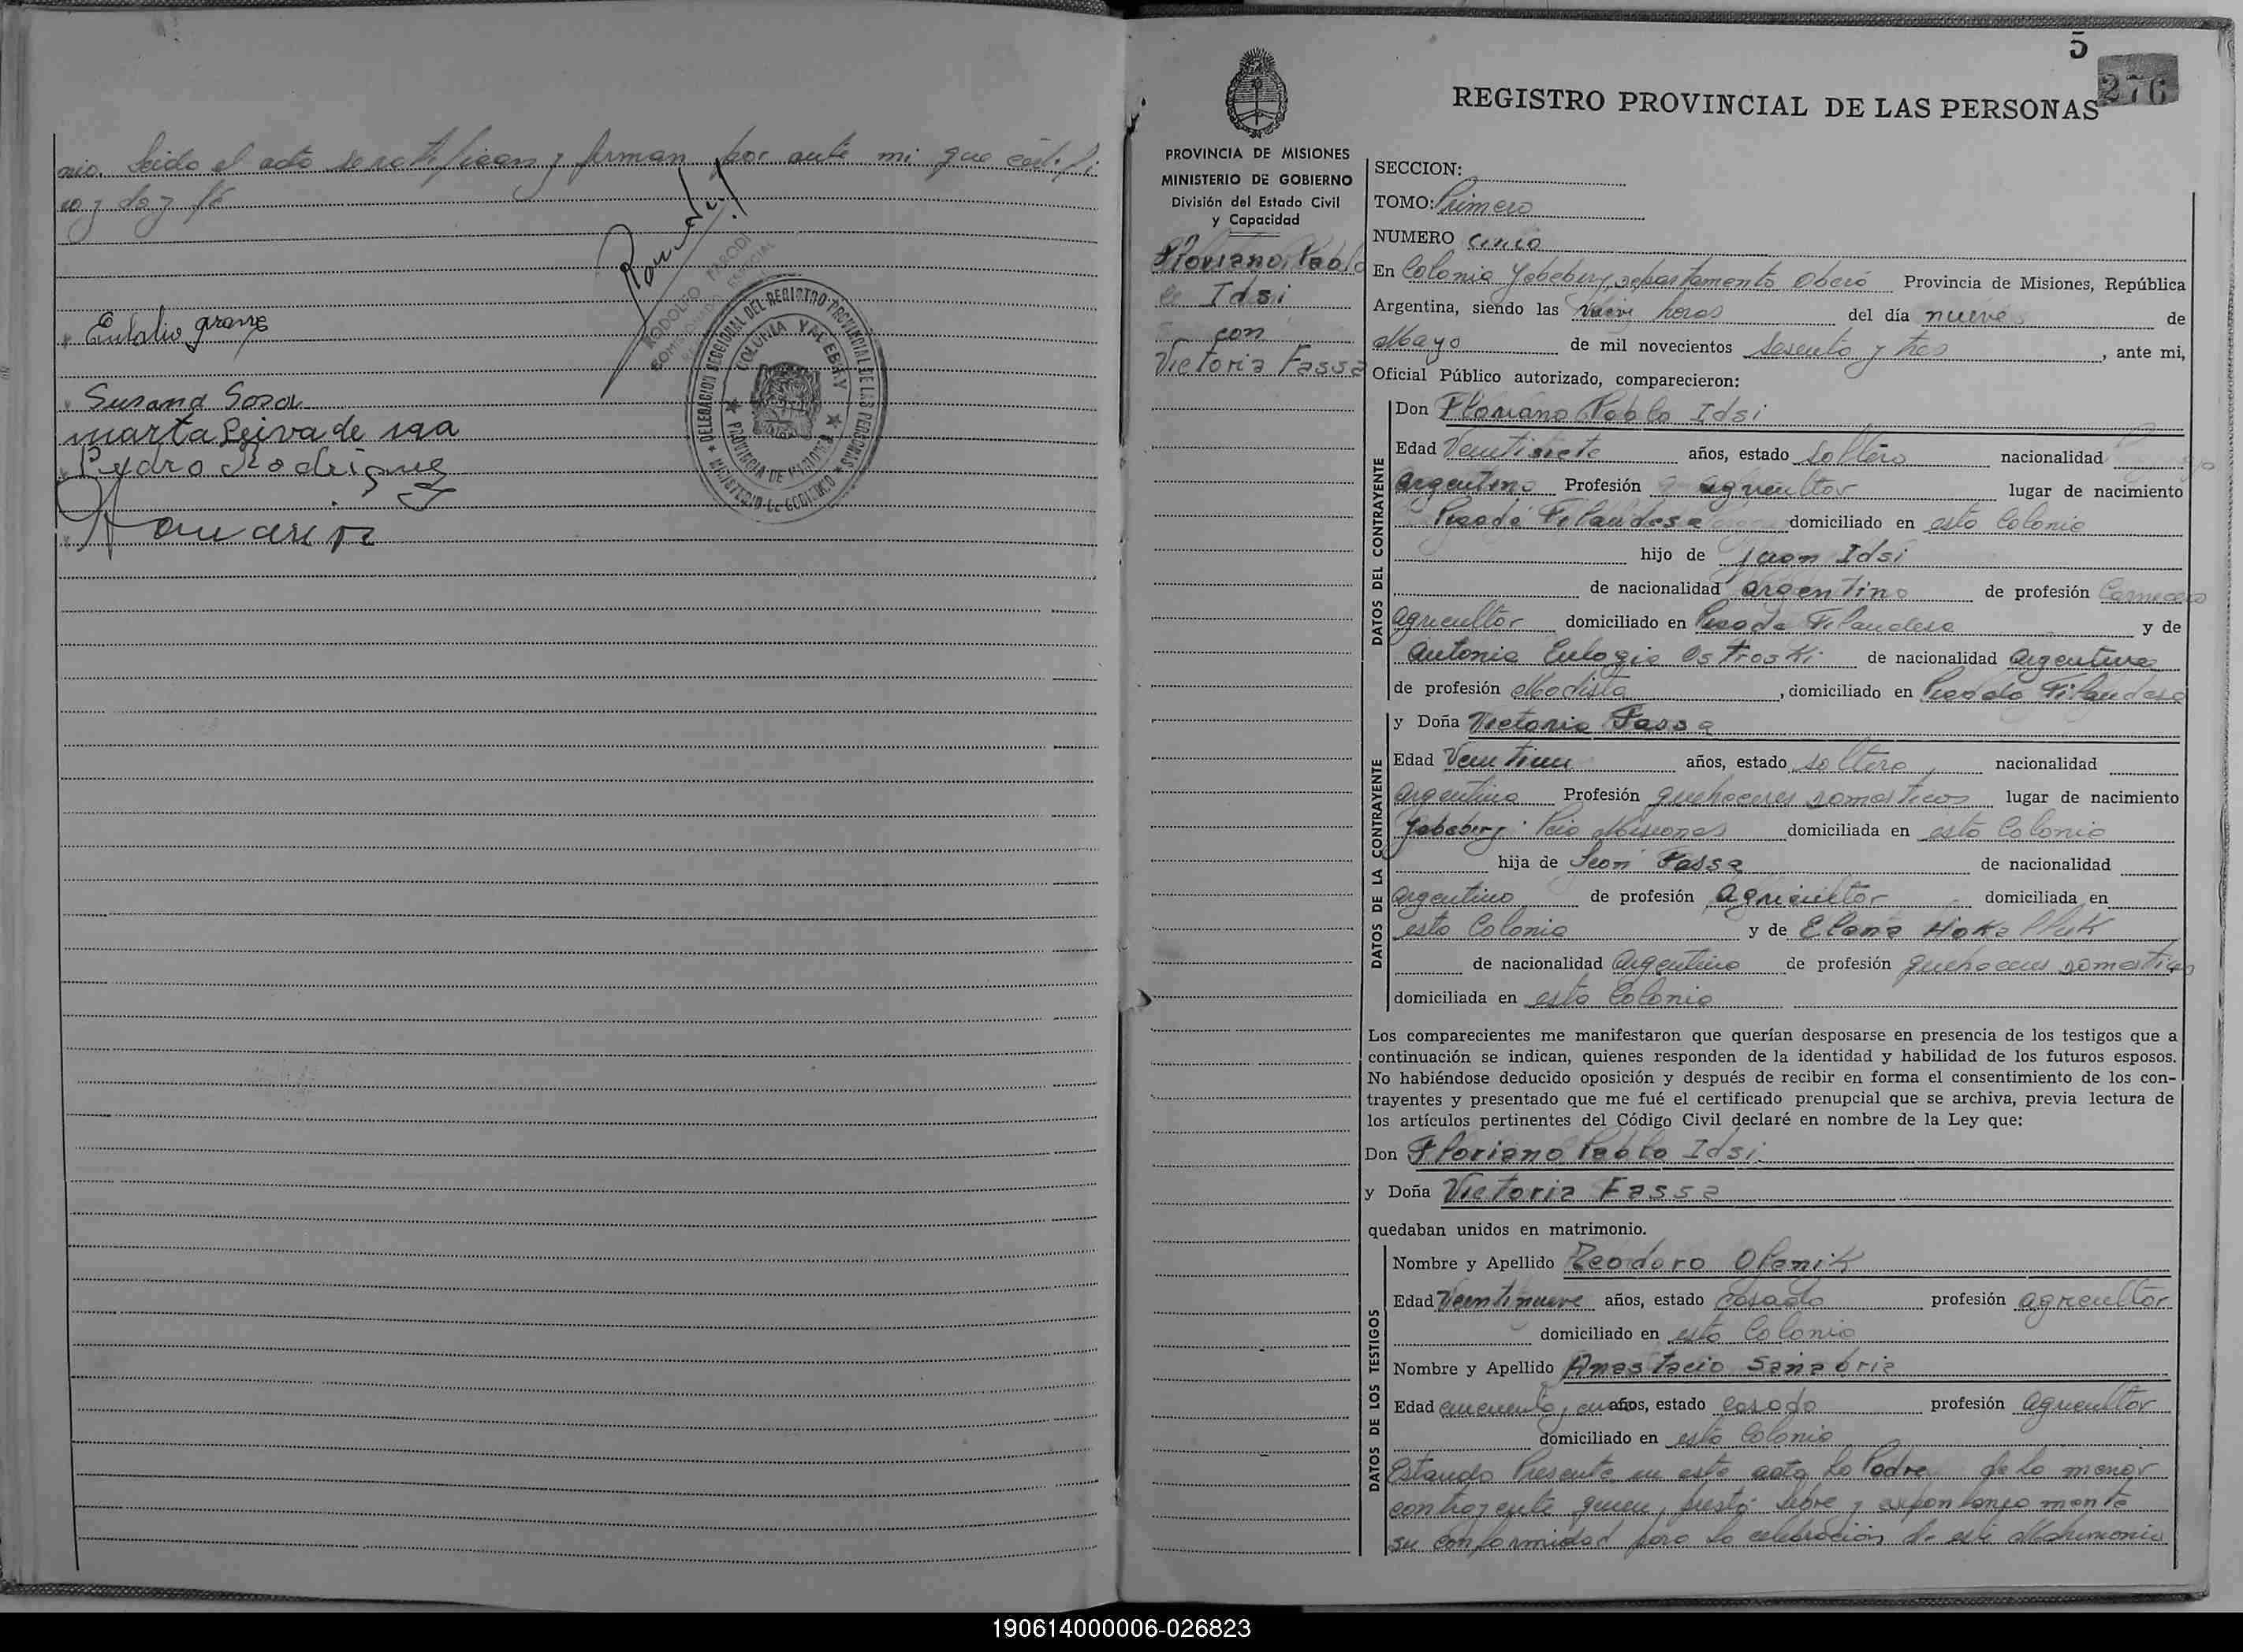 nio. Leido el acta se ratifican y firman por ante mi que certifi
co y doy fé
Eulalio
Susana Sosa
Marta Leiva de
Pedro Rodriguez
RODOLFO PARODI
DELEGACION SECCIONAL DEL REGISTRO PROVINCIAL DE LAS PERSONAS
MINISTERIO DE GOBIERNO
COLONIA YABEBIRY
PROVINCIA DE MISIONES
5
276
REGISTRO PROVINCIAL DE LAS PERSONAS
PROVINCIA DE MISIONES
MINISTERIO DE GOBIERNO
División del Estado Civil
y Capacidad
Floriano Pablo
Idsi
con
Victoria Fassa
SECCION:
TOMO: Primero
NUMERO cinco
En Colonia Yabebiry, departamento Oberá Provincia de Misiones, República
Argentina, siendo las nueve horas del día nueve de
Mayo de mil novecientos sesenta y tres, ante mi,
Oficial Público autorizado, comparecieron:
DATOS DEL CONTRAYENTE
Don Floriano Pablo Idsi
Edad Veintisiete años, estado soltero nacionalidad
argentino Profesión agricultor lugar de nacimiento
Picada Filandesa domiciliado en esta Colonia
hijo de Juan Idsi
de nacionalidad argentino de profesión
agricultor domiciliado en Picada Filandesa y de
Antonia Eulogia Ostroski de nacionalidad Argentina
de profesión Modista, domiciliado en Picada Filandesa
DATOS DE LA CONTRAYENTE
y Doña Victoria Fassa
Edad Veintiun años, estado soltera nacionalidad
argentina Profesión quehaceres domesticos lugar de nacimiento
Yabebiry Pcia Misiones domiciliada en esta Colonia
hija de Leon Fassa de nacionalidad
argentino de profesión Agricultor domiciliada en
esta Colonia y de Elena
de nacionalidad argentina de profesión quehaceres domesticos
domiciliada en esta Colonia
Los comparecientes me manifestaron que querían desposarse en presencia de los testigos que a
continuación se indican, quienes responden de la identidad y habilidad de los futuros esposos.
No habiéndose deducido oposición y después de recibir en forma el consentimiento de los con-
trayentes y presentado que me fué el certificado prenupcial que se archiva, previa lectura de
los artículos pertinentes del Código Civil declaré en nombre de la Ley que:
Don Floriano Pablo Idsi
y Doña Victoria Fassa
quedaban unidos en matrimonio.
DATOS DE LOS TESTIGOS
Nombre y Apellido Teodoro Olenik
Edad Veintinueve años, estado casado profesión agricultor
domiciliado en esta Colonia
Nombre y Apellido Anastacio Sanabria
Edad cincuenta y años, estado casado profesión agricultor
domiciliado en esta Colonia
Estando Presente en este acto La Padre de la menor
contrayente quien, presta libre y espontaneamente
su conformidad para la celebración de este Matrimonio
190614000006-026823